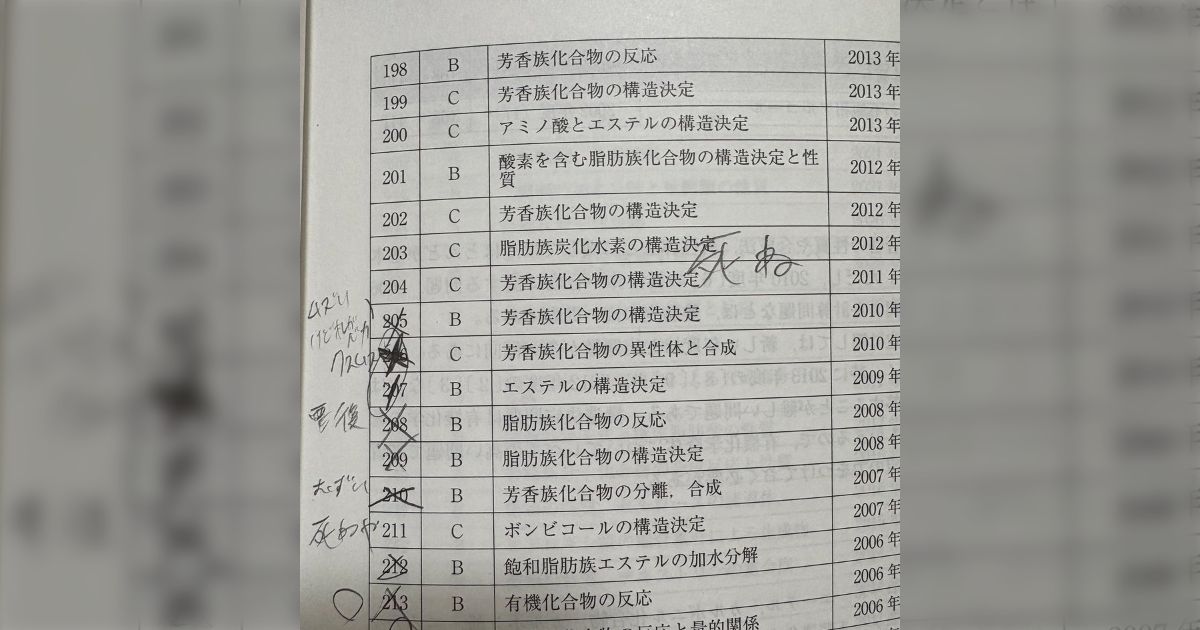 198 B 芳香族化合物の反応 2013年
199 C 芳香族化合物の構造決定 2013年
200 C アミノ酸とエステルの構造決定 2013年
201 B 酸素を含む脂肪族化合物の構造決定と性質 2012年
202 C 芳香族化合物の構造決定 2012年
203 C 脂肪族炭化水素の構造決定 2012年
死ね
204 C 芳香族化合物の構造決定 2011年
205 B 芳香族化合物の構造決定 2010年
C 芳香族化合物の異性体と合成 2010年
207 B エステルの構造決定 2009年
208 B 脂肪族化合物の反応 2008年
209 B 脂肪族化合物の構造決定 2008年
むずい 210 B 芳香族化合物の分離，合成 2007年
211 C ボンビコールの構造決定 2007年
212 B 飽和脂肪族エステルの加水分解 2006年
213 B 有機化合物の反応 2006年
の反応と量的関係 2006年